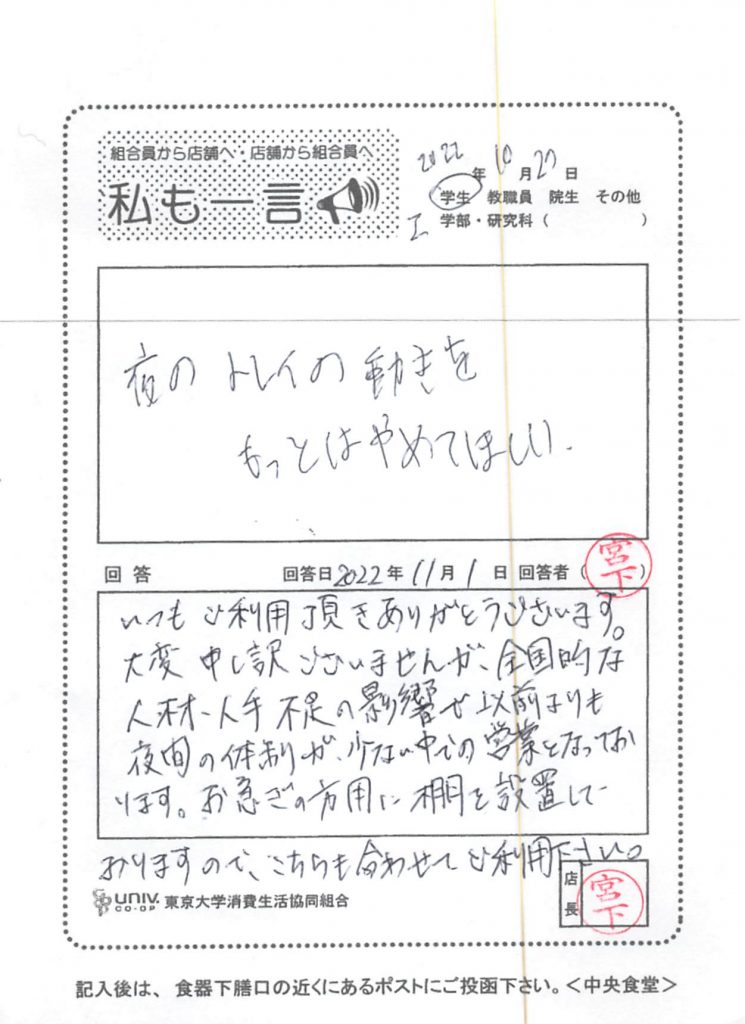 組合員から店舗へ・店舗から組合員へ
私も一言
2022年10月27日
学生 教職員 院生 その他
工 学部・研究科（　　　　　）
夜のトレイの動きを
もっとはやめてほしい.
回答 回答日2022年11月1日 回答者（宮下）
いつもご利用頂きありがとうございます。
大変申し訳ございませんが、全国的な
人材・人手不足の影響で以前よりも
夜間の体制が、少ない中での営業となってお
ります。お急ぎの方用に棚を設置して
おりますので、こちらも合わせてご利用下さい。
UNIV. CO-OP 東京大学消費生活協同組合
店長 宮下
記入後は、食器下膳口の近くにあるポストにご投函下さい。＜中央食堂＞